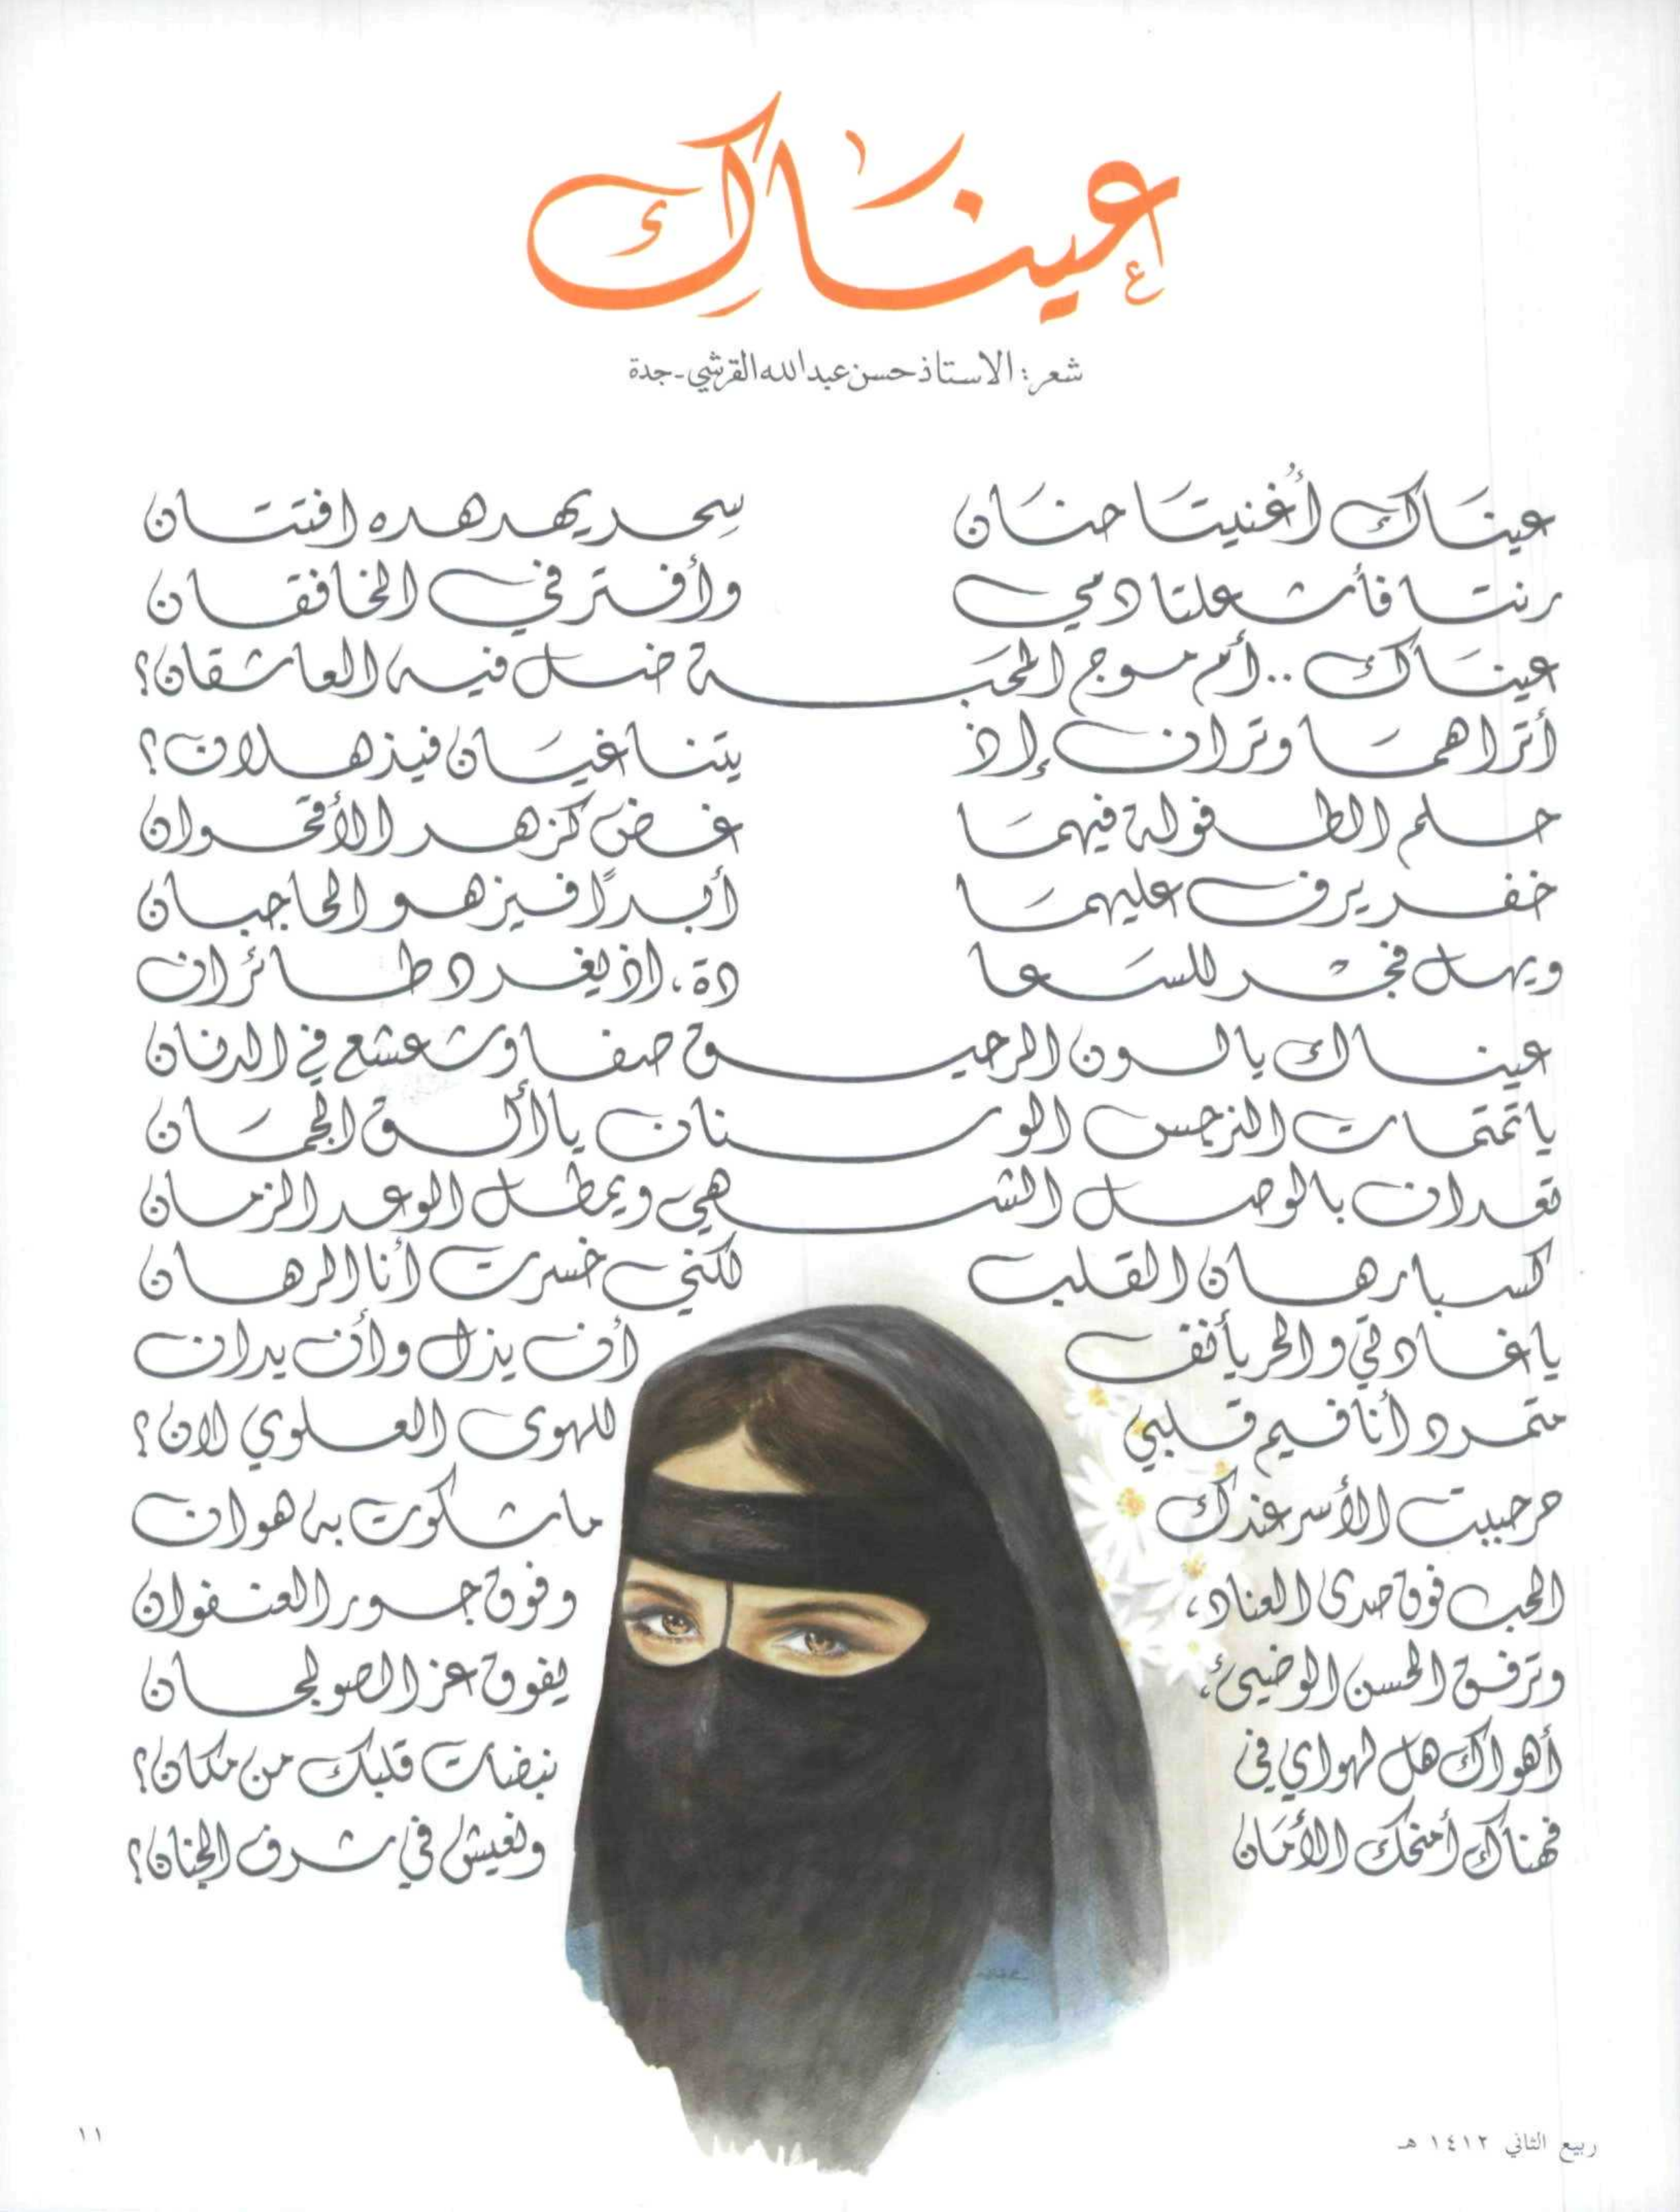 عينَاكِ
شعر: الاستاذ حسن عبدالله القرشي - جدة
عينَاكِ أُغنيتَا حنَان سِحر يهدهده افتتان
رنتا فأشعلتا دمي وأفتر في الخافقان
عينَاكِ .. أم موج المحَبة ضل فيه العاشقان؟
أتراهمَا وتران إذ يتناغيَان فيذهلان؟
حلم الطفولة فيهمَا غض كزهر الأقحوان
خفر يرف عليهمَا أبدًا فيزهو الحاجبان
ويهل فجر للسَعا دة، اذ يغرد طائران
عيناك يا لون الرحيق صفا وشعشع في الدنان
يا تمتمات النرجس الوسنان يا ألق الجمَان
تعدان بالوصل الشهي ويمطل الوعد الزمان
كسبا رهان القلب لكني خسرت أنا الرهان
يا غادتي والحر يأنف أن يذل وأن يدان
متمرد أنا فيم قلبي للهوى العلوي لان؟
مرحبيت الأسر عندك ما شكوت به هوان
الحب فوق صدى العناد، وفوق جور العنفوان
وترفق الحسن الوضيء، يفوق عز الصولجان
أهواك هل لهواي في نبضات قلبك من مكان؟
فهناك أمنحك الأمَان ونعيش في شرف الجنان؟
ربيع الثاني ١٤١٢ هـ
١١